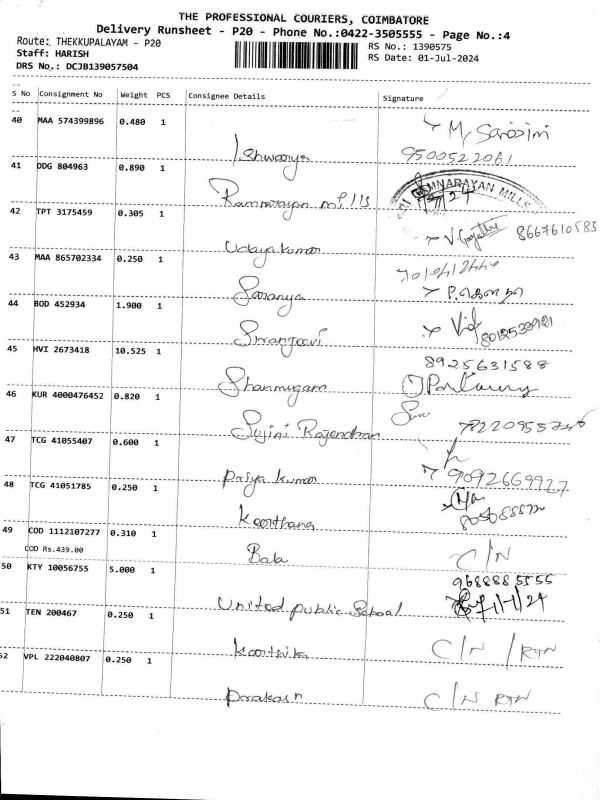 THE PROFESSIONAL COURIERS, COIMBATORE
Delivery Runsheet - P20 - Phone No.:0422-3505555 - Page No.:4
Route: THEKKUPALAYAM - P20
Staff: HARISH
DRS No.: DCJB139057504
RS No.: 1390575
RS Date: 01-Jul-2024
S No Consignment No Weight PCS Consignee Details Signature
40 MAA 574399896 0.480 1
Ishwarya
9500522061
41 DDG 804963 0.890 1
Ramnarayan mills
MNARAYAN MILLS
42 TPT 3175459 0.305 1
Udayakumar
8667610583
43 MAA 865702334 0.250 1
Saranya
44 BOD 452934 1.900 1
45 HVI 2673418 10.525 1
Shanmugam
8925631588
46 KUR 4000476452 0.820 1
Sujini Rajendran
47 TCG 41055407 0.600 1
Priya kumar
9092669927
48 TCG 41051785 0.250 1
Keerthana
49 COD 1112107277 0.310 1
COD Rs.439.00
Bala
C/N
50 KTY 10056755 5.000 1
United public School
9688885555
51 TEN 200467 0.250 1
Keerthika
C/N / RTN
52 VPL 222040807 0.250 1
Prakash
C/N RTN